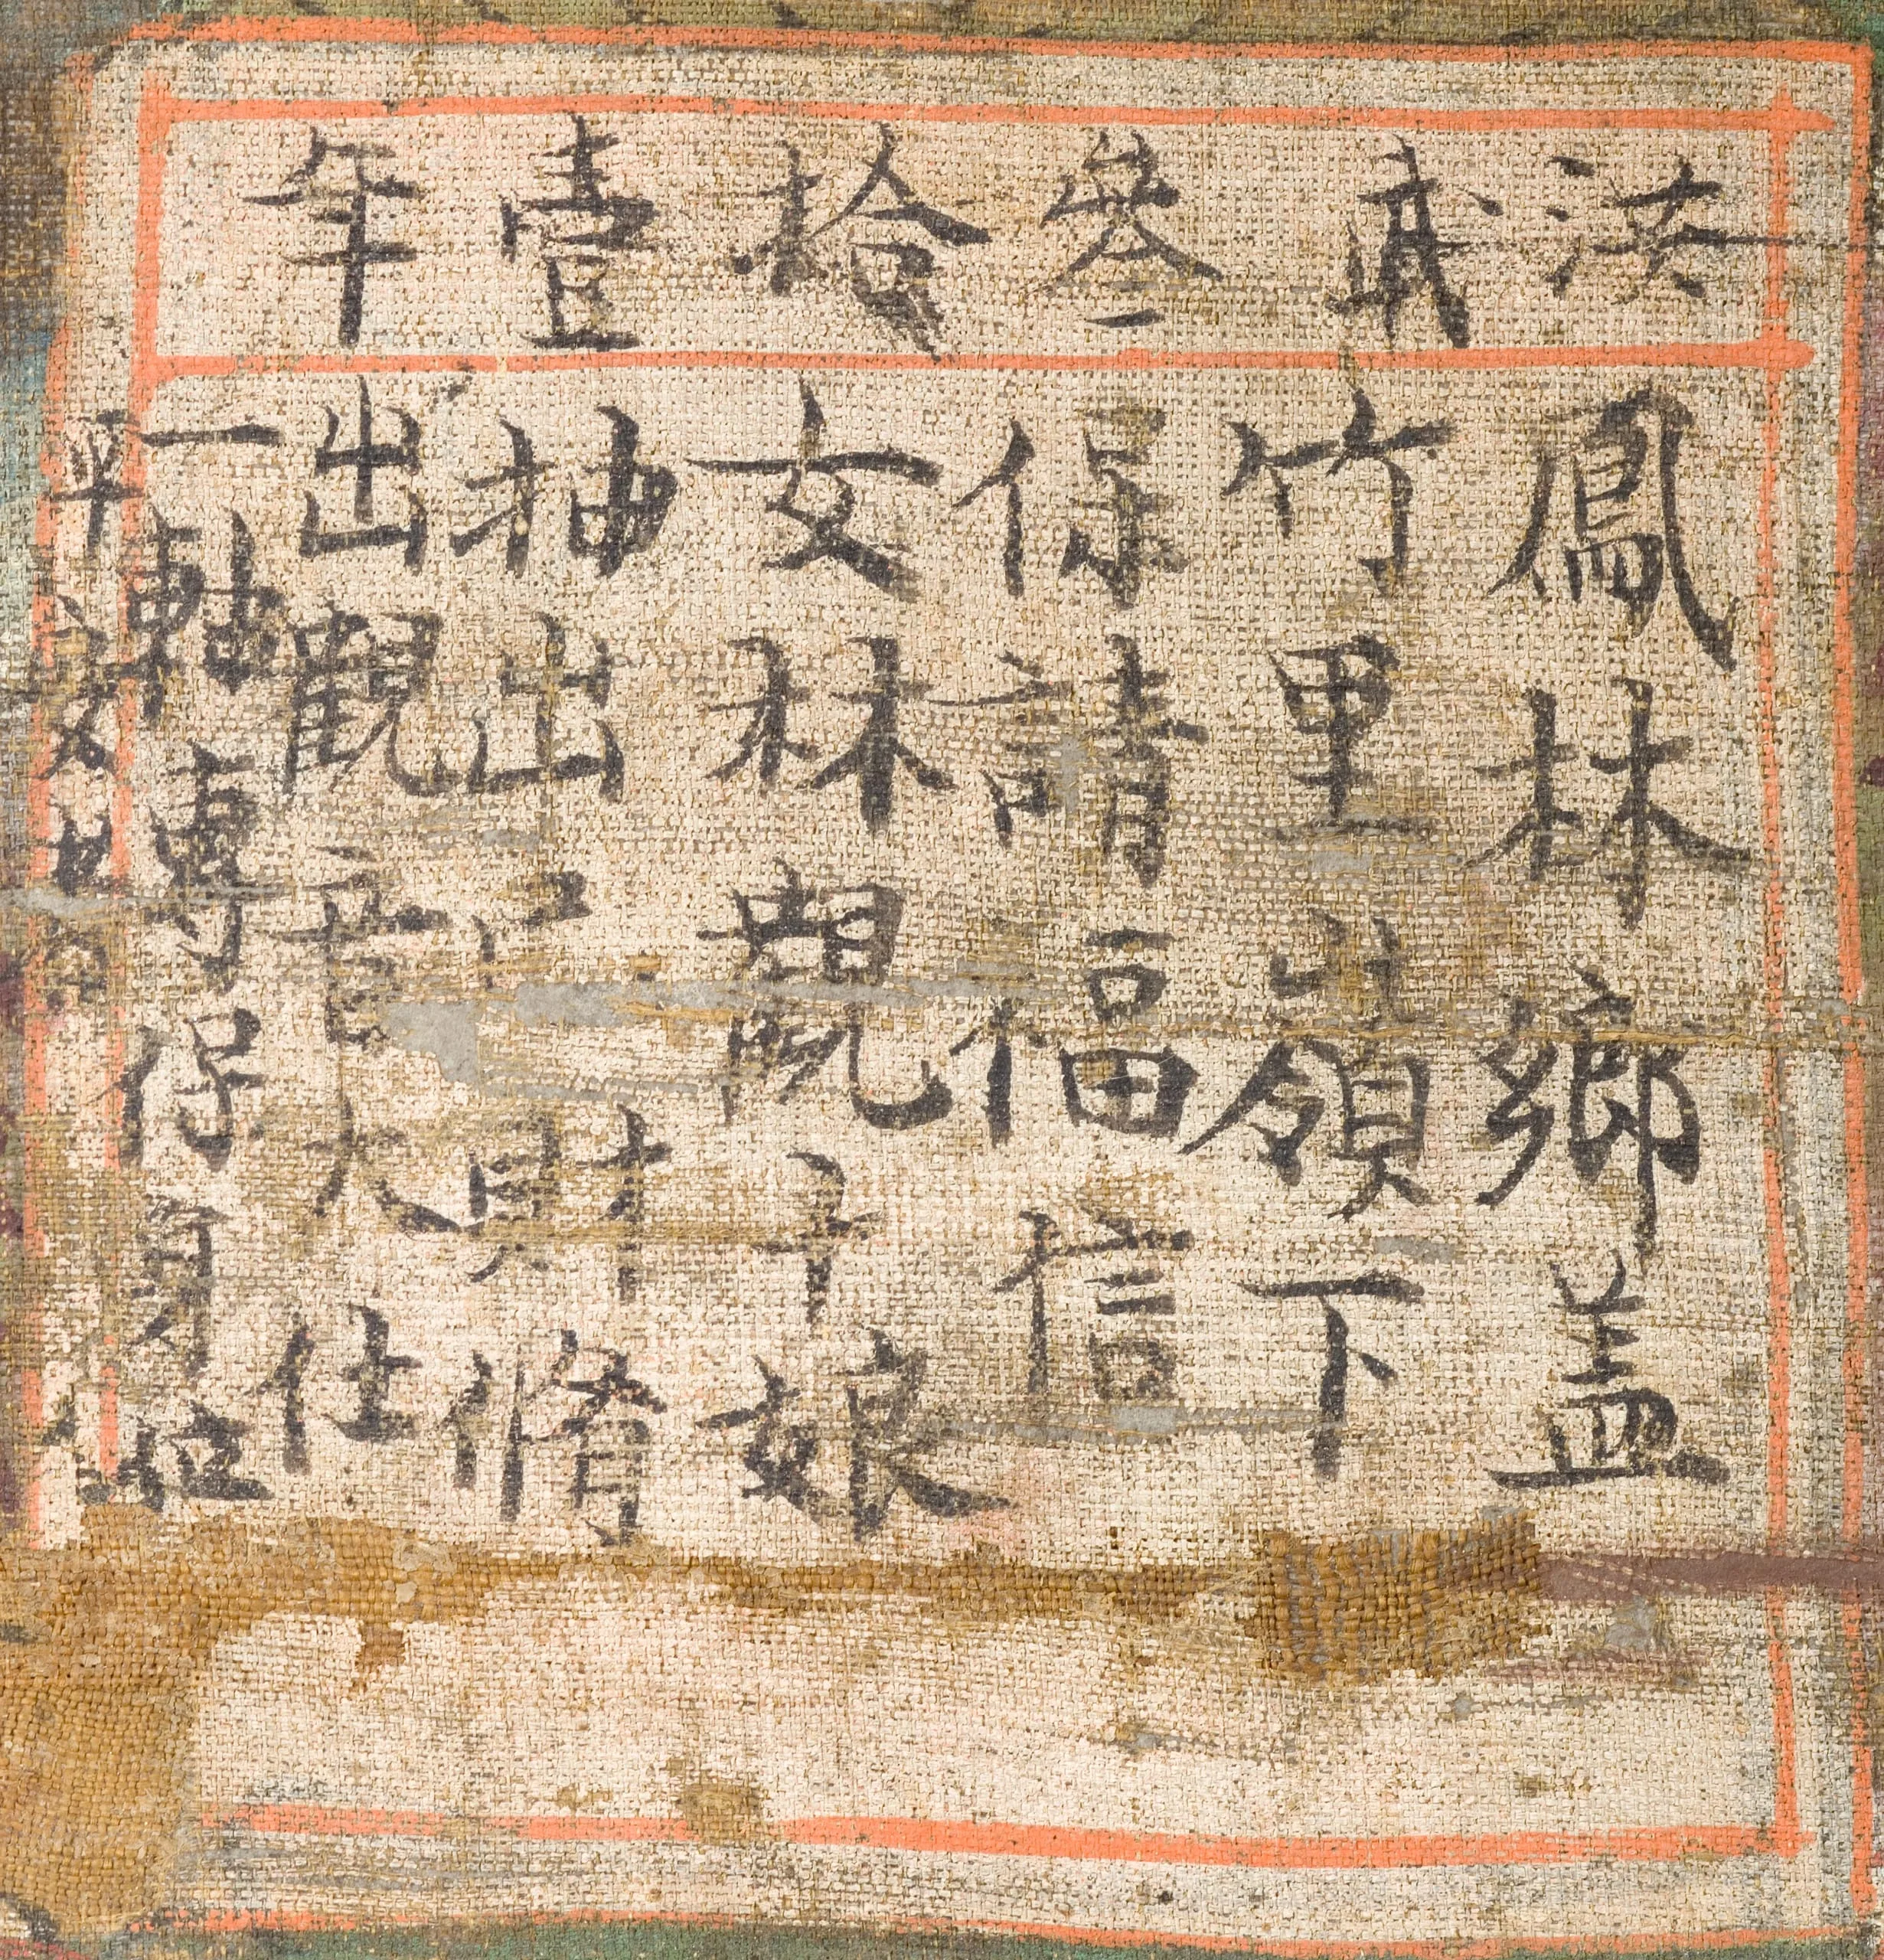 洪武叄拾壹年
鳳林鄉盖
竹里嶺下
保請福信
女林觀十娘
抽出財脩
出觀音大仕
一軸專保身位
平安